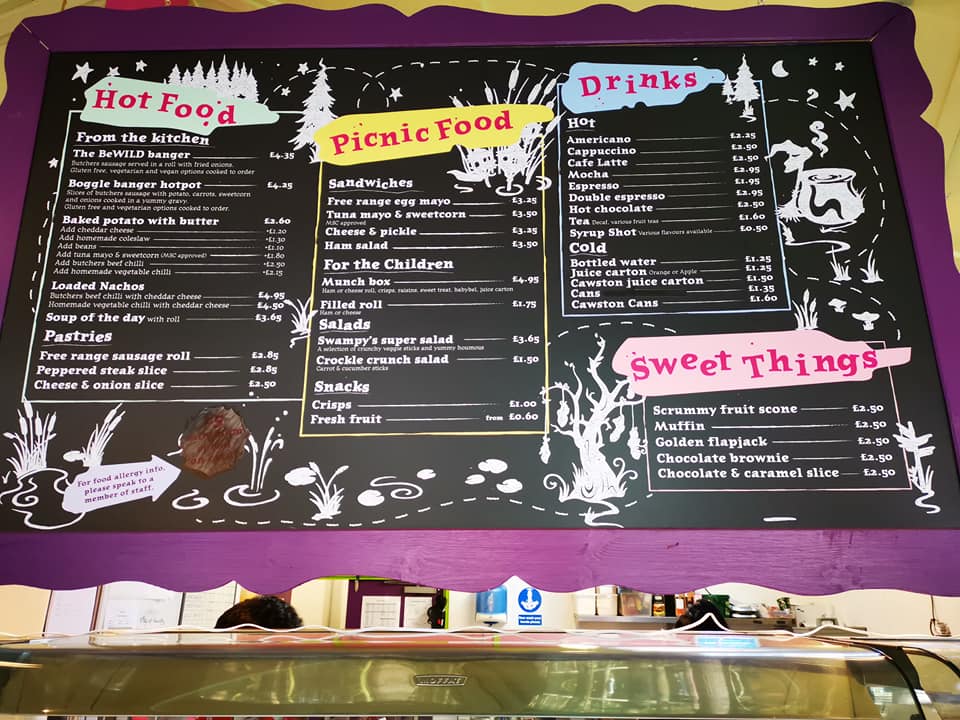 Hot Food
From the kitchen
The BeWILD banger £4.35
Butchers sausage served in a roll with fried onions.
Gluten free, vegetarian and vegan options cooked to order
Boggle banger hotpot £4.25
Slices of butchers sausage with potato, carrots, sweetcorn
and onions cooked in a yummy gravy.
Gluten free and vegetarian options cooked to order.
Baked potato with butter £2.60
Add cheddar cheese +£1.20
Add homemade coleslaw +£1.30
Add beans +£1.10
Add tuna mayo & sweetcorn (MSC approved) +£1.80
Add butchers beef chilli +£2.50
Add homemade vegetable chilli +£2.15
Loaded Nachos
Butchers beef chilli with cheddar cheese £4.95
Homemade vegetable chilli with cheddar cheese £4.50
Soup of the day with roll £3.65
Pastries
Free range sausage roll £2.85
Peppered steak slice £2.85
Cheese & onion slice £2.50
For food allergy info,
please speak to a
member of staff.
Picnic Food
Sandwiches
Free range egg mayo £3.25
Tuna mayo & sweetcorn £3.50
MSC approved
Cheese & pickle £3.25
Ham salad £3.50
For the Children
Munch box £4.95
Ham or cheese roll, crisps, raisins, sweet treat, babybel, juice carton
Filled roll £1.75
Ham or cheese
Salads
Swampy's super salad £3.65
A selection of crunchy veggie sticks and yummy houmous
Crockle crunch salad £1.50
Carrot & cucumber sticks
Snacks
Crisps £1.00
Fresh fruit from £0.60
Drinks
Hot
Americano £2.25
Cappuccino £2.50
Cafe Latte £2.50
Mocha £2.95
Espresso £1.95
Double espresso £2.95
Hot chocolate £2.50
Tea Decaf, various fruit teas £1.60
Syrup Shot Various flavours available £0.50
Cold
Bottled water £1.25
Juice carton Orange or Apple £1.25
Cawston juice carton £1.50
Cans £1.35
Cawston Cans £1.60
Sweet Things
Scrummy fruit scone £2.50
Muffin £2.50
Golden flapjack £2.50
Chocolate brownie £2.50
Chocolate & caramel slice £2.50
MOFFAT